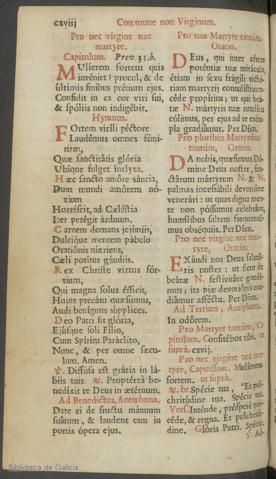 cxviij
Commune non Virginum.
Pro nec virgine nec
martyre.
Capitulum. Prov. 31. b.
MUlierem fortem quis
invéniet? procul, & de
últimis fínibus prétium ejus.
Confídit in ea cor viri sui,
& spóliis non indigébit.
Hymnus.
FOrtem viríli péctore
Laudémus omnes fémi-
nam,
Quæ sanctitátis glória
Ubíque fulget ínclyta.
Hæc sancto amóre sáucia,
Dum mundi amórem nó-
xium
Horréscit, ad Cæléstia
Iter perégit árduum.
Carnem domans jejúniis,
Dulcíque mentem pábulo
Oratiónis nútriens,
Cæli potítur gáudiis.
Rex Christe virtus fór-
tium,
Qui magna solus éfficis,
Hujus precátu quæsumus,
Audi benígnus súpplices.
Deo Patri sit glória,
Ejúsque soli Fílio,
Cum Spíritu Paráclito,
Nunc, & per omne sæcu-
lum. Amen.
℣. Diffúsa est grátia in lá-
biis tuis. ℟. Proptérea be-
nedíxit te Deus in ætérnum.
Ad Benedictus, Antiphona.
Date ei de fructu mánuum
suárum, & laudent eam in
portis ópera ejus.
Pro una Martyre tantùm,
Oratio.
DEus, qui inter cétera
poténtiæ tuæ mirácula,
étiam in sexu frágili victó-
riam martyrii contulísti: con-
céde propítius, ut qui beá-
tæ N. Martyris tuæ natalítia
cólimus, per ejus ad te exém-
pla gradiámur. Per Dñm.
Pro pluribus Martyribus
tantùm, Oratio.
DA nobis, quæsumus Dó-
mine Deus noster, san-
ctárum mártyrum N. & N.
palmas incessábili devotióne
venerári: ut quas digna men-
te non póssumus celebráre,
humílibus saltem frequenté-
mus obséquiis. Per Dñm.
Pro nec virgine nec mar-
tyre, Oratio.
EXáudi nos Deus salutá-
ris noster: ut sicut de
beátæ N. festivitáte gaudé-
mus, ita piæ devotiónis eru-
diámur afféctu. Per Dñm.
Ad Tertiam, Antiphona.
In odórem.
Pro Martyre tantùm, Ca-
pitulum. Confitébor tibi. ut
suprà. cxvij.
Pro nec virgine nec mar-
tyre, Capitulum. Mulíerem
fortem. ut suprà.
℟. br Spécie tua, * Et pul-
chritúdine tua. Spécie tua.
Vers. Inténde, próspere pro-
céde, & regna. Et pulchritú-
dine. Glória Patri. Spécie.
Biblioteca de Galicia